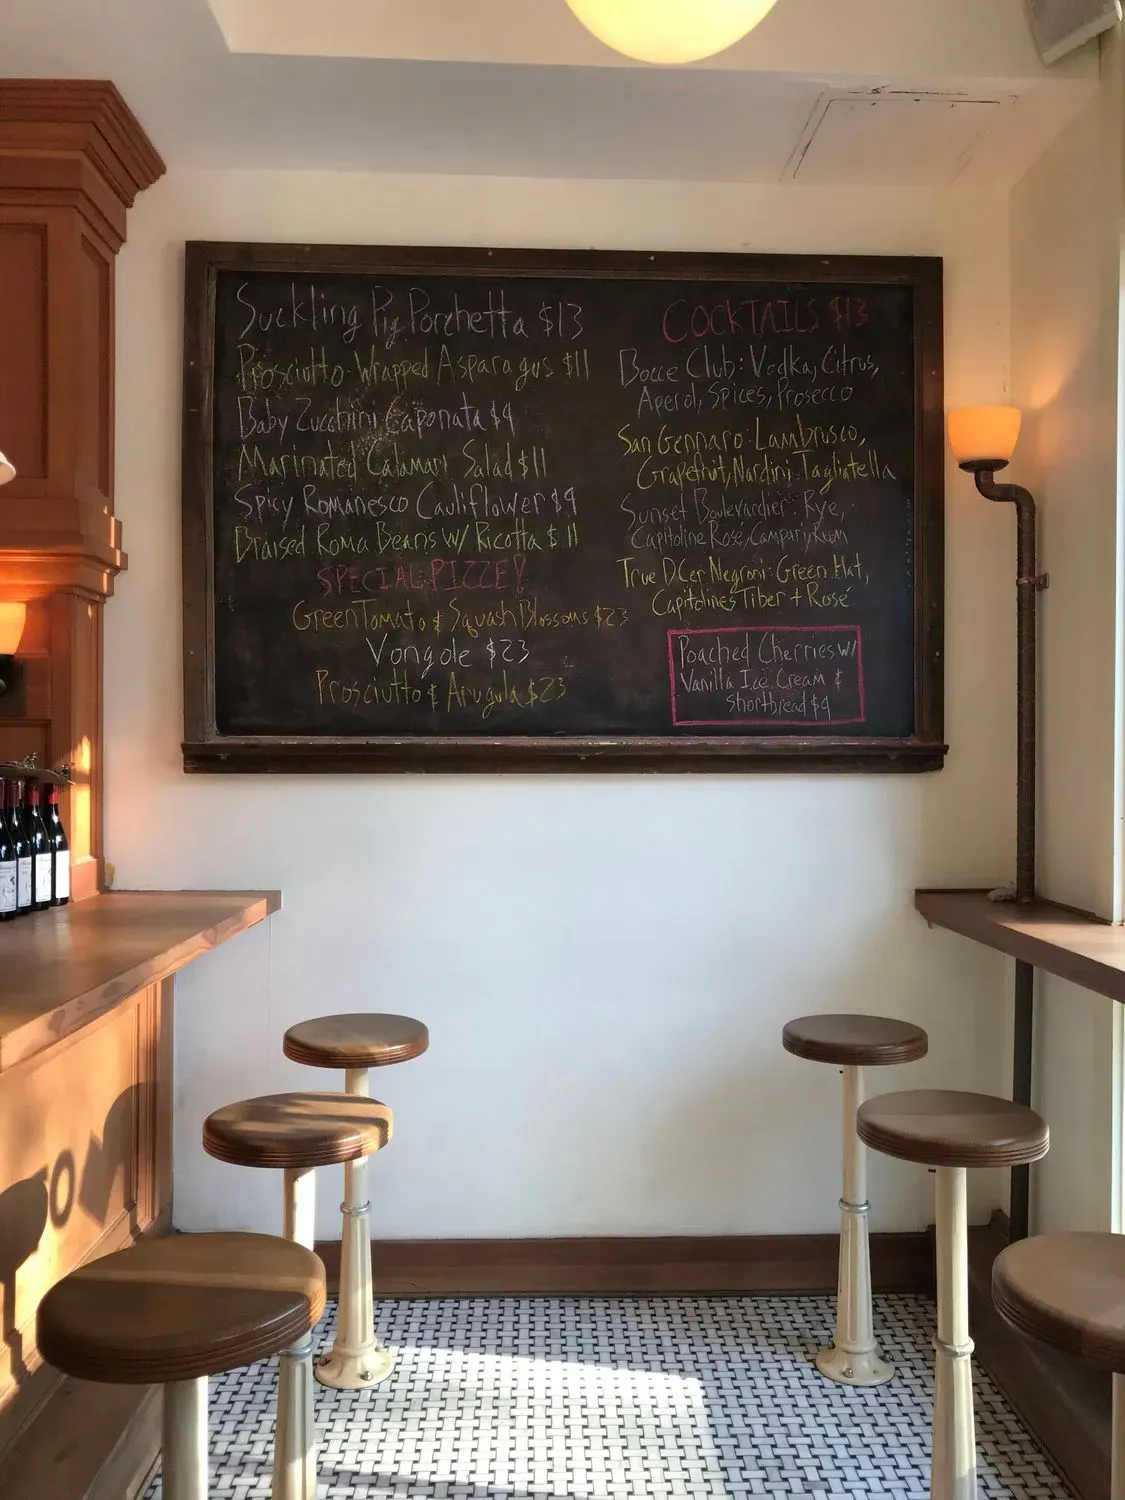 Suckling Pig Porchetta $13
Prosciutto Wrapped Asparagus $11
Baby Zucchini Caponata $9
Marinated Calamari Salad $11
Spicy Romanesco Cauliflower $9
Braised Roma Beans W/ Ricotta $11
SPECIAL PIZZE!
Green Tomato & Squash Blossoms $23
Vongole $23
Prosciutto & Arugula $23
COCKTAILS $13
Bocce Club: Vodka, Citrus,
Aperol, Spices, Prosecco
San Gennaro: Lambrusco,
Grapefruit, Nardini Tagliatella
Sunset Boulevardier: Rye,
Capitoline Rosé, Campari, Rum
True DCer Negroni: Green Hat,
Capitolines Tiber + Rosé
Poached Cherries w/
Vanilla Ice Cream &
Shortbread $9